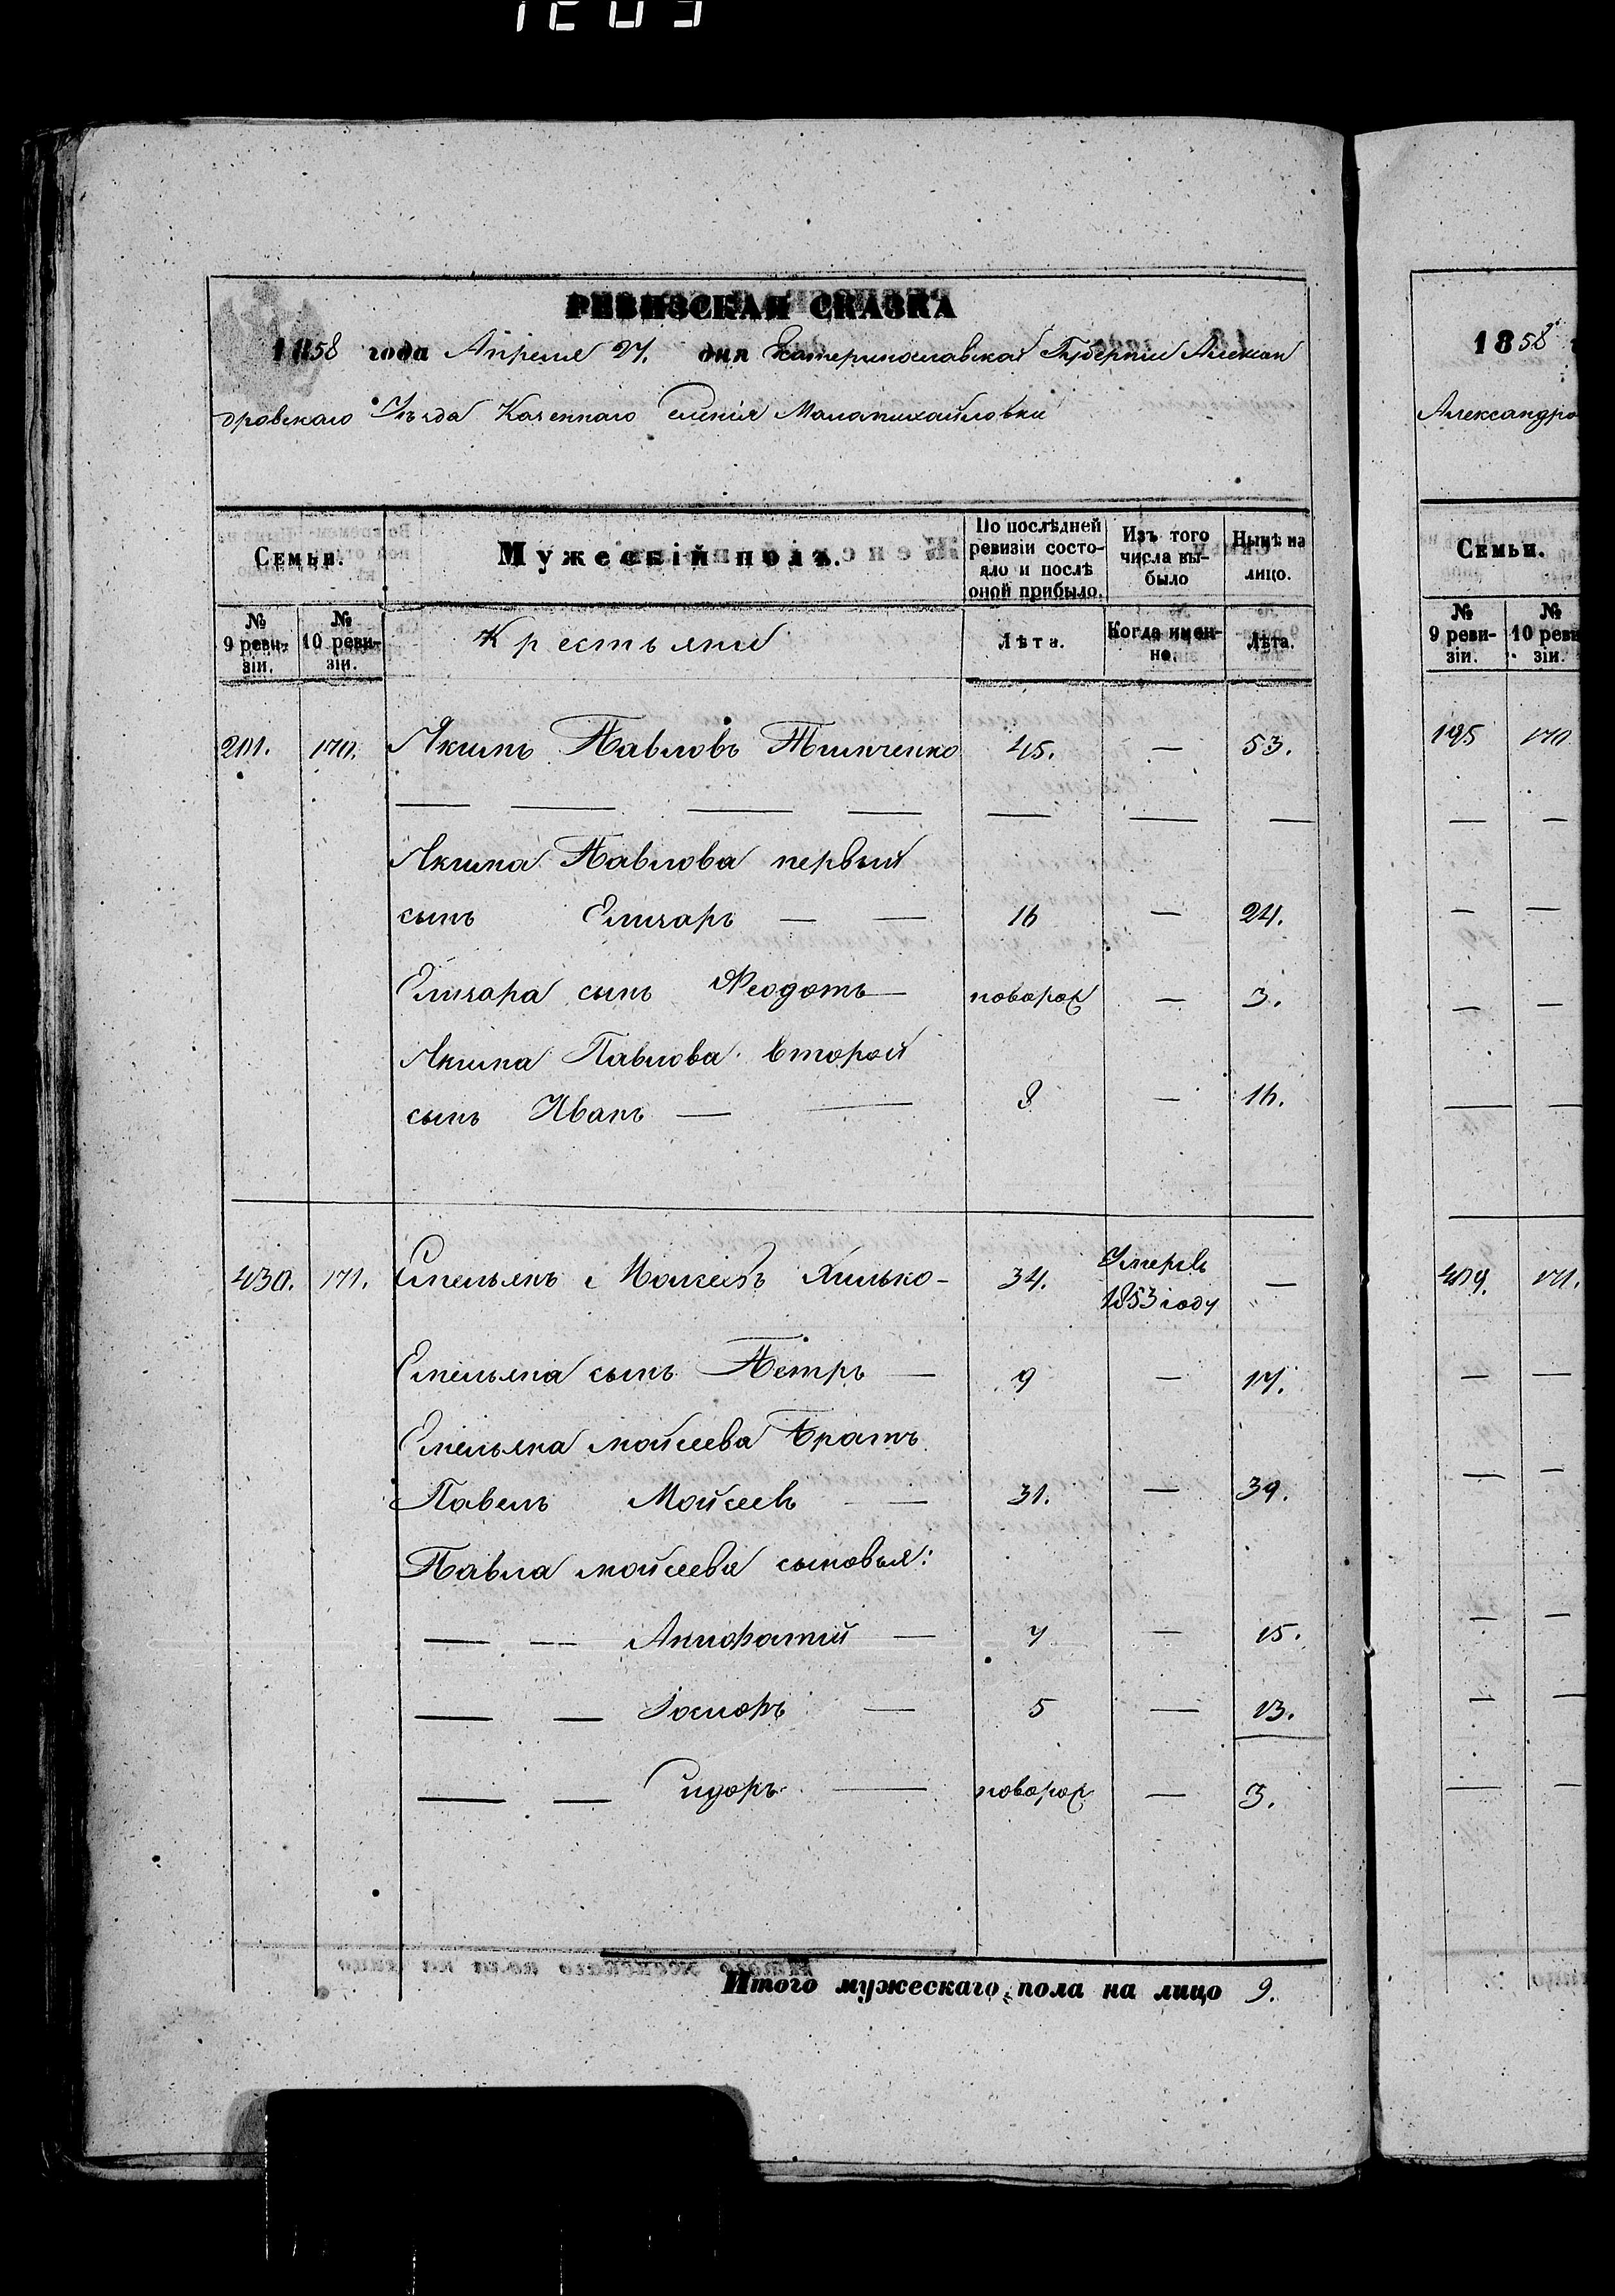 РЕВИЗСКАЯ СКАЗКА
1858 года Апреля 27. дня Екатеринославской Губернии Алексан
дровскаго Уѣзда Казеннаго селенія Маломихайловки
Семьи. Мужескій полъ. По послѣдней ревизіи состояло и послѣ оной прибыло. Изъ того числа выбыло Нынѣ на лицо.
№ 9 ревизіи. № 10 ревизіи. Крестьяне Лѣта. Когда именно. Лѣта.
201. 170. Якимъ Павловъ Тимченко 45. — 53.
Якима Павлова первый
сынъ Елизаръ — — 16 — 24.
Елизара сынъ Феодотъ — новорож — 3.
Якима Павлова второй
сынъ Иванъ — — 8 — 16.
430. 171. Емельянъ Моисеевъ Хилько - 34. Умеръ 1853 году —
Емельяна сынъ Петръ — 9 — 17.
Емельяна мойсеева братъ
Павелъ Мойсеевъ — — 31. — 39.
Павла мойсеева сыновья:
— — Анифатий — 7 — 15.
— — Іосифъ — 5 — 13.
— — Сидоръ — новорож — 3.
Итого мужескаго пола на лицо 9.
1858
Александро
Семьи.
№ 9 ревизіи. № 10 реви зіи.
195 170
419. 171.